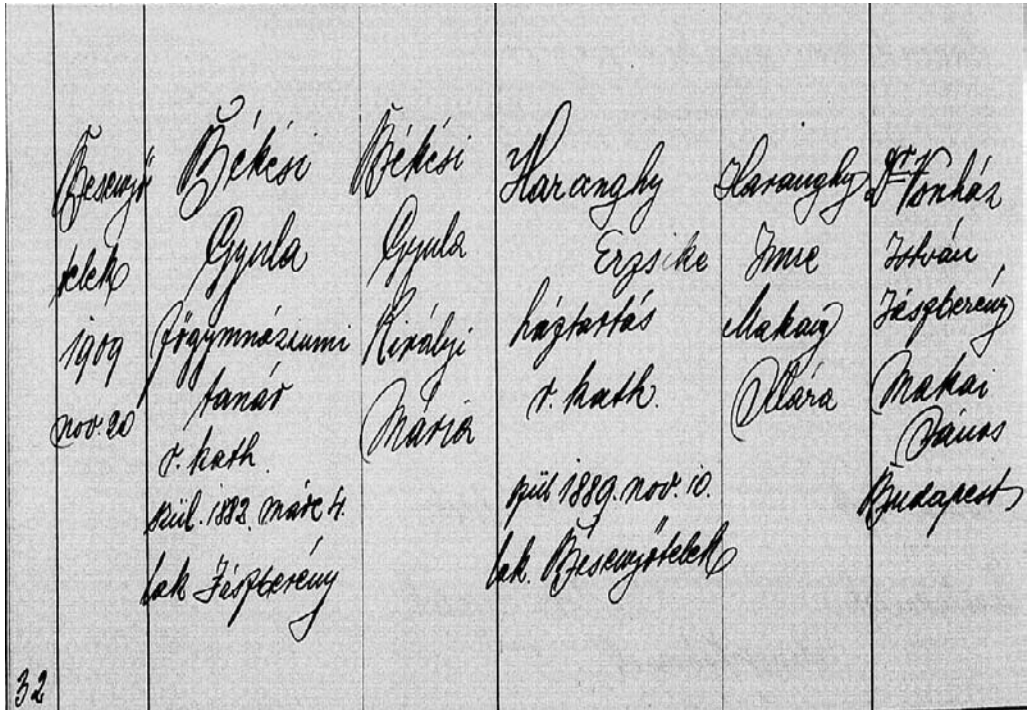 32
Besenyő
telek
1909
nov. 20
Békési
Gyula
főgymnáziumi
tanár
r. kath.
szül. 1882. márc 4.
lak Jászberény
Békési
Gyula
Királyi
Mária
Haranghy
Erzsike
háztartás
r. kath.
szül 1889. nov. 10.
lak. Besenyőtelek
Haranghy
Imre
Makay
Klára
Dr Vonház
István
Jászberény
Makai
János
Budapest